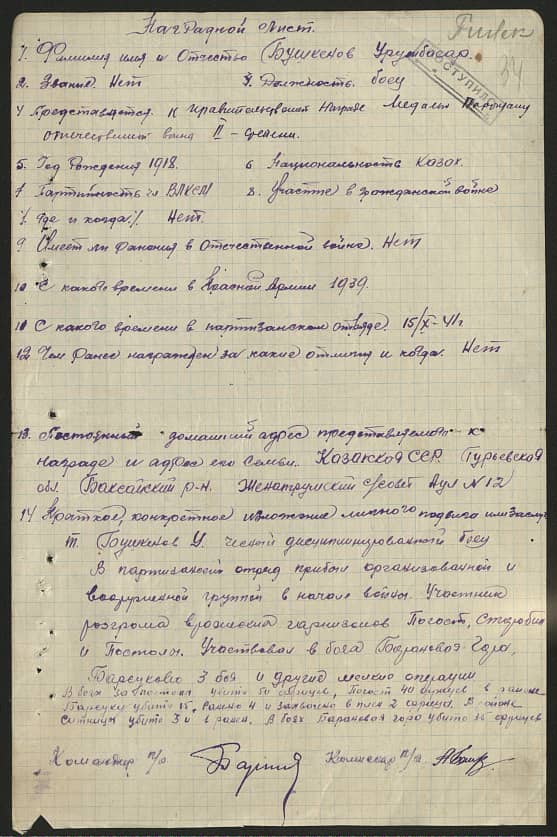 Наградной Лист.
1. Фамилия имя и Отчество Бушкенов Урумбасар.
2. Звание. Нет 3. Должность. боец
ПОСТУПИЛО
34
4 Представляется. к правительственной Награде Медаль Партизану
отечественной войны II - степени.
5. Год Рождения 1918. 6 Национальность Казах.
7 Партийность чл ВЛКСМ 8. Участие в гражданской войне
где и когда. Нет.
9 Имеет ли ранения в Отечественной войне. Нет
10 С какого времени в Красной Армии 1939.
10 С какого времени в партизанском отряде. 15/X-41г
12. Чем Ранее награжден за какие отличия и когда. Нет
13. Постоянный домашний адрес представляемого к
награде и адрес его Семьи. Казахская ССР Гурьевская
обл. Баксайский р-н. с/совет Аул N 12
14 Краткое, конкретное изложение личного подвига или заслуг
т. Бушкенов У. честный дисциплинированный боец
В партизанский отряд прибыл организованной и
вооруженной группой в начале войны. Участник
розгрома вражеских гарнизонов Погост, Старобин
и Постолы. Участвовал в боях Барановая Гора,
Барсуково 3 боя и другие мелкие операции
В боях за Постолы убито 50 фрицев, Погост 40 в районе
Барсуку убито 15, ранено 4 и захвачено в плен 2 фрица. В районе
Ситницы убито 3 и в ранен. В боях Барановая гора убито фрицев
Командир п/о Комиссар п/о.